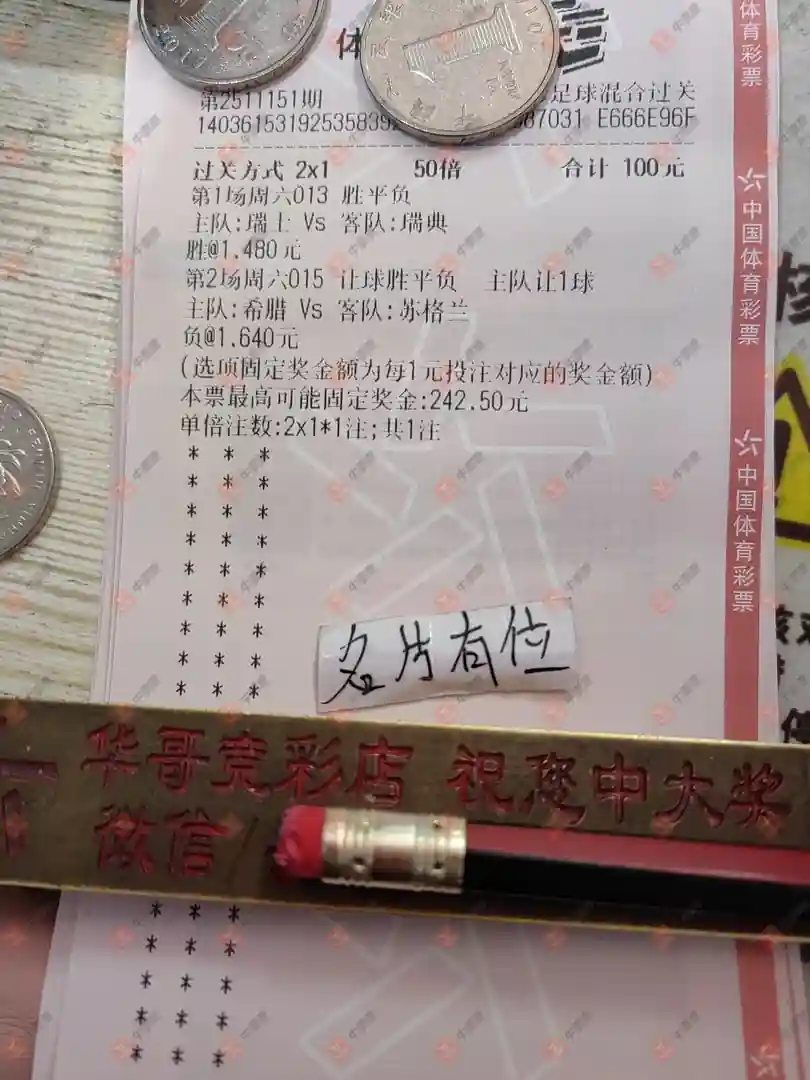 体
第2511151期
足球混合过关
14036153192535839
87031 E666E96F
过关方式 2x1 50倍 合计 100元
第1场周六013 胜平负
主队:瑞士 Vs 客队:瑞典
胜@1.480元
第2场周六015 让球胜平负 主队让1球
主队:希腊 Vs 客队:苏格兰
负@1.640元
(选项固定奖金额为每1元投注对应的奖金额)
本票最高可能固定奖金:242.50元
单倍注数:2x1*1注;共1注
* * *
* * *
* * *
* * *
* * *
* * *
* * *
* * *
* * *
名片有位
华哥竞彩店 祝您中大奖
微信
* * *
* * *
* * *
* * *
* * *
体育彩票
中国体育彩票
中国体育彩票